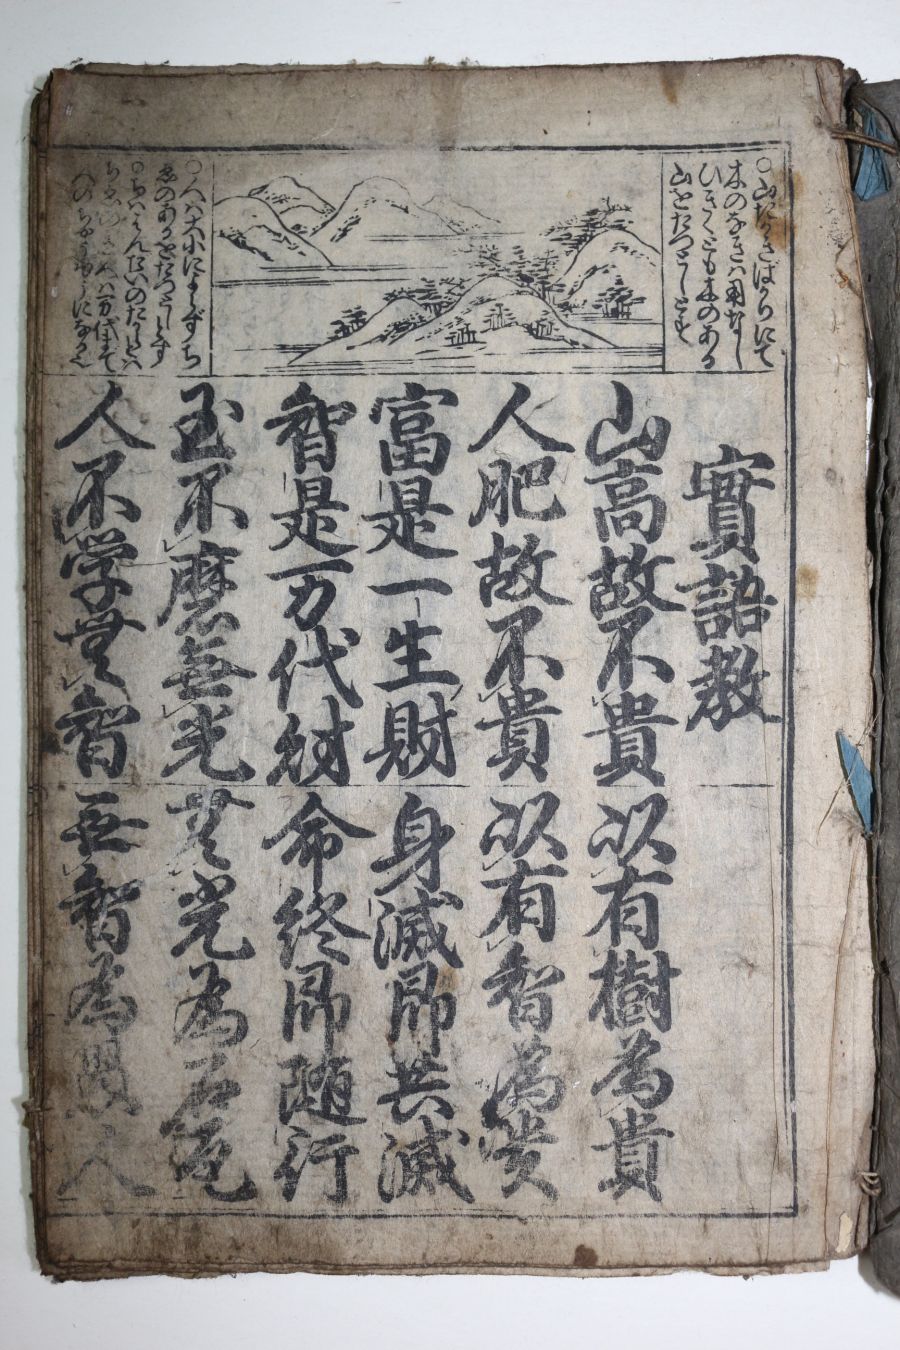 ○山たかきばかりにて
木のなきハ用なし
ひきくとも木のある
山をたつとしとす
○人ハ大小によらずち
ゑのあるをたつとしとす
實語教
山高故不貴 以有樹為貴
人肥故不貴 以有智為貴
富是一生財 身滅即共滅
智是万代財 命終即随行
玉不磨無光 無光為石瓦
人不学無智 無智為愚人